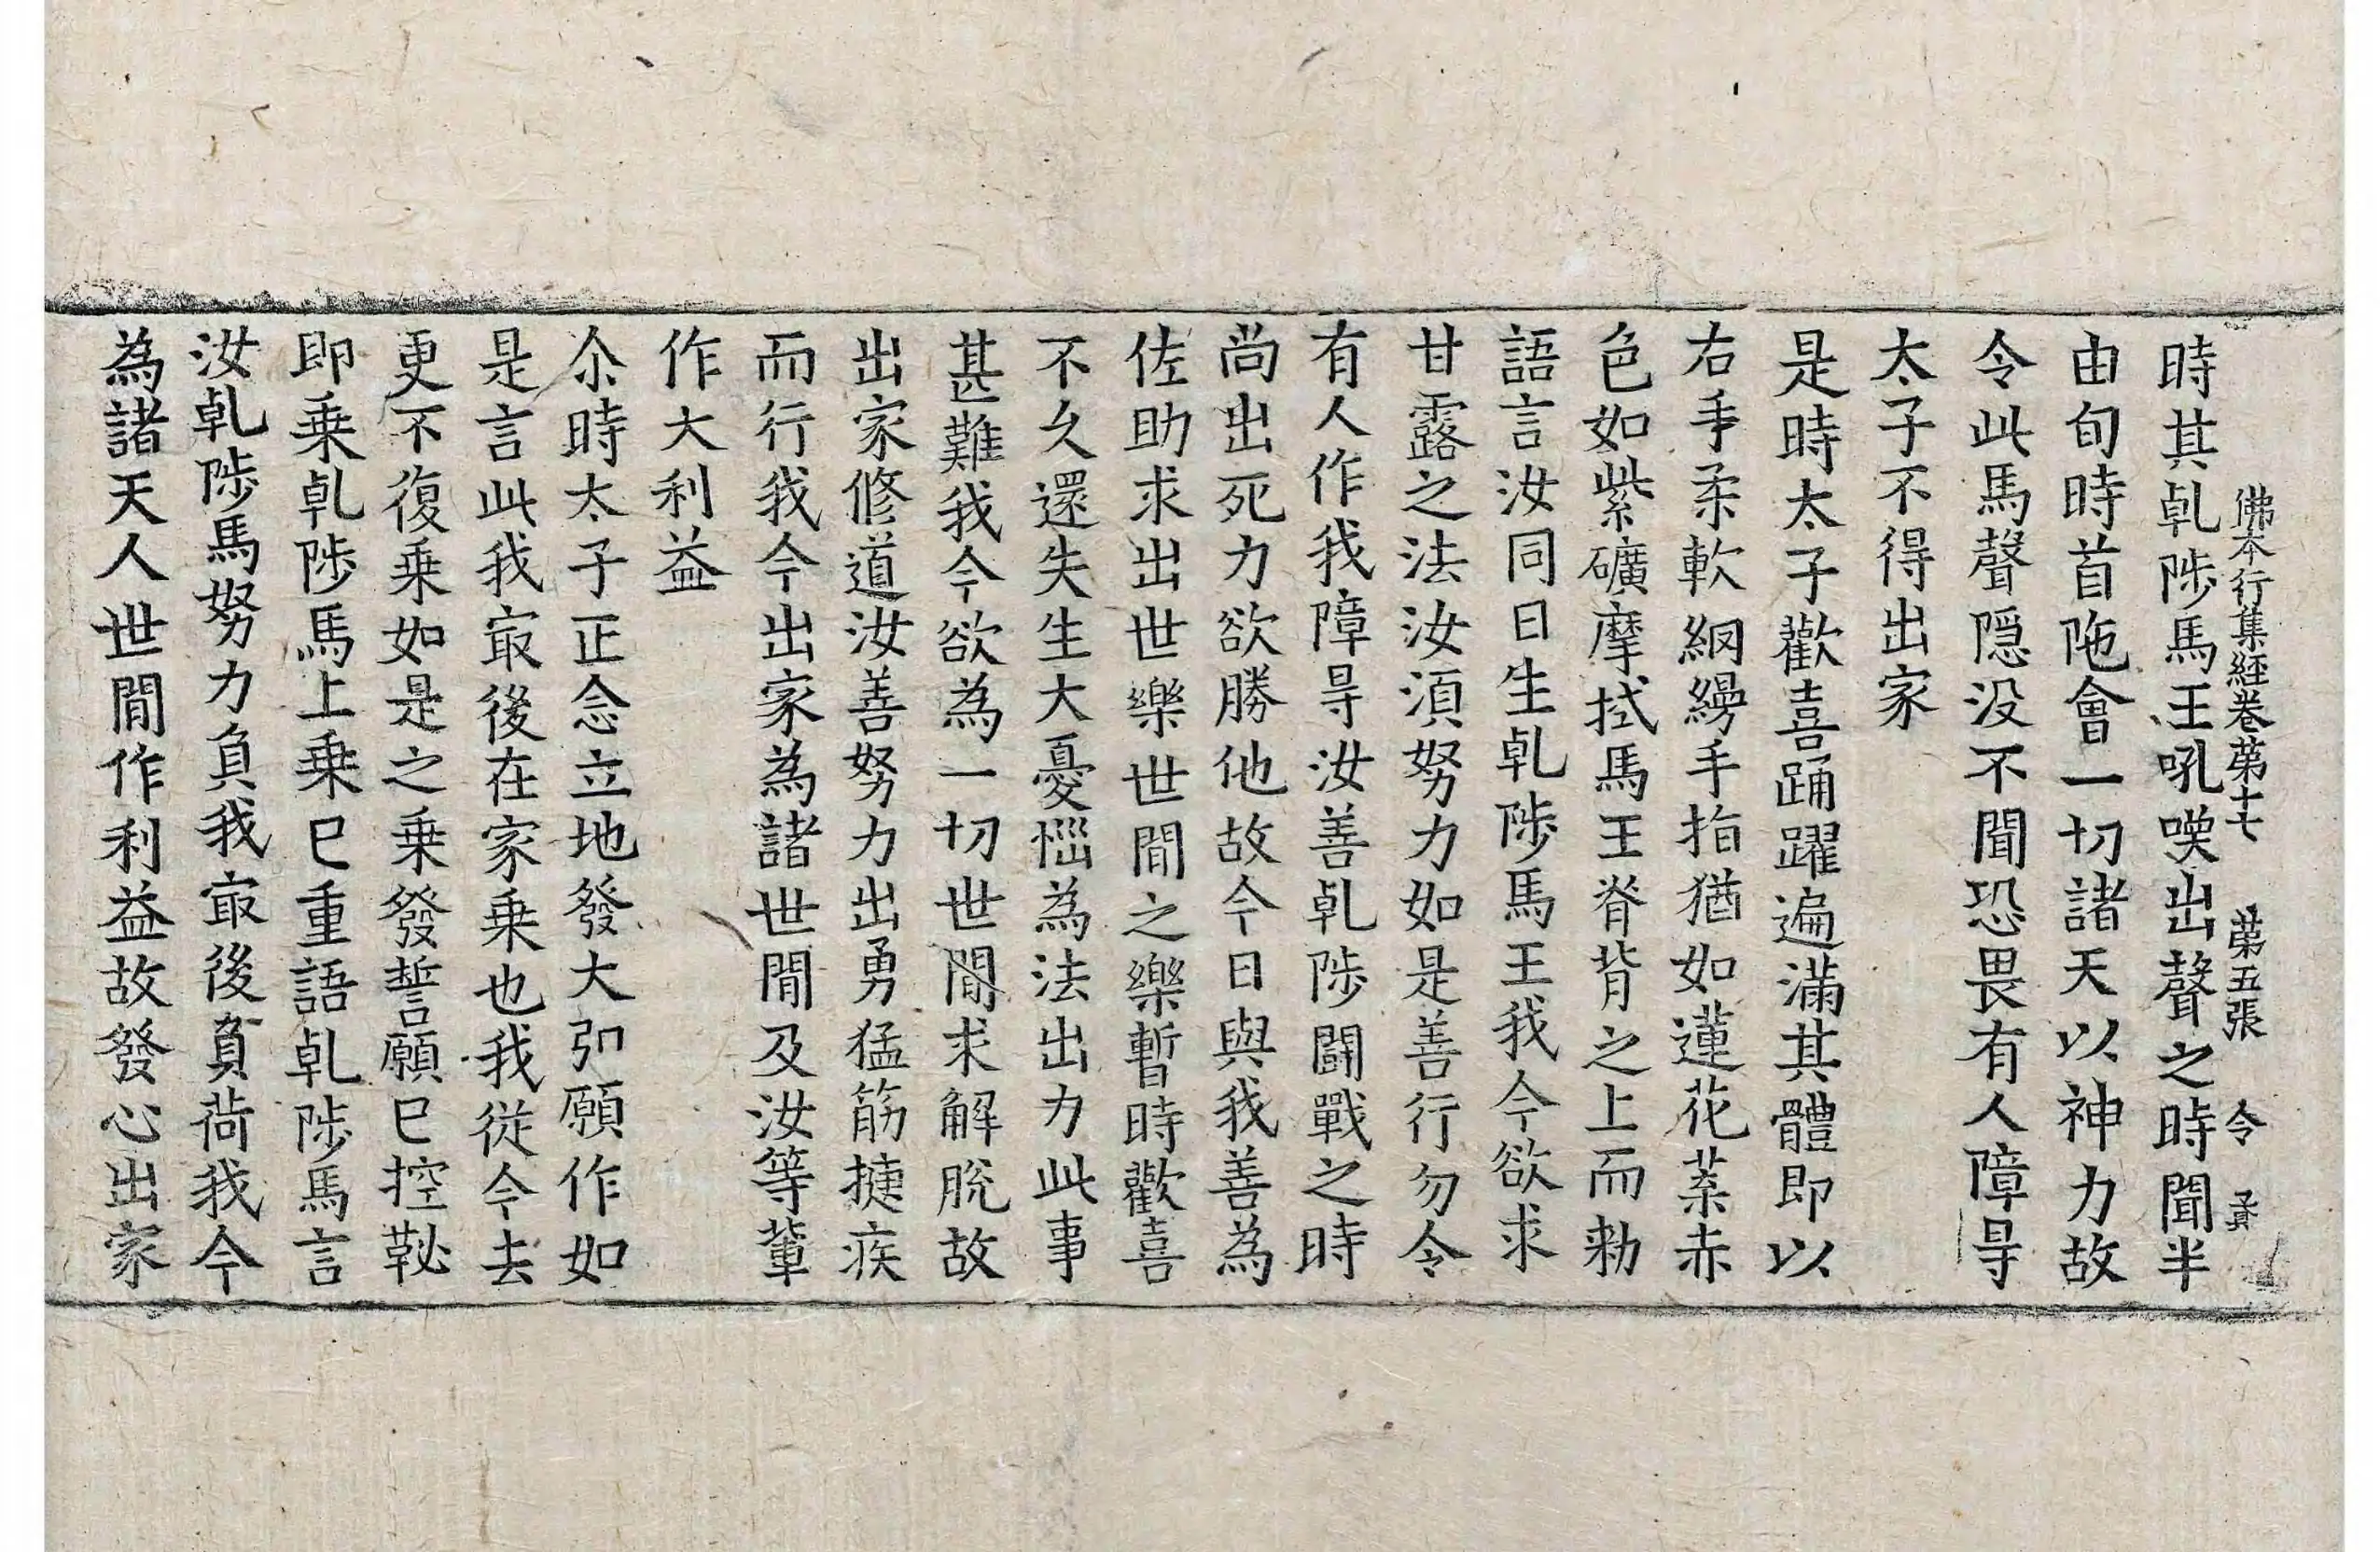 佛本行集經卷第十七 第五張 令
時其乹陟馬王吼喚出聲之時聞半
由旬時首陁會一切諸天以神力故
令此馬聲隱没不聞恐畏有人障㝵
太子不得出家
是時太子歡喜踊躍遍滿其體即以
右手柔軟網縵手指猶如蓮花葉赤
色如紫礦摩拭馬王脊背之上而勑
語言汝同日生乹陟馬王我今欲求
甘露之法汝須努力如是善行勿令
有人作我障㝵汝善乹陟鬪戰之時
尚出死力欲勝他故今日與我善為
佐助求出世樂世間之樂暫時歡喜
不久還失生大憂惱為法出力此事
甚難我今欲為一切世間求解脫故
出家修道汝善努力出勇猛筋揵疾
而行我今出家為諸世間及汝等輩
作大利益
尒時太子正念立地發大弘願作如
是言此我㝡後在家乗也我從今去
更不復乗如是之乗發誓願已控鞁
即乗乹陟馬上乗已重語乹陟馬言
汝乹陟馬努力負我㝡後負荷我今
為諸天人世間作利益故發心出家